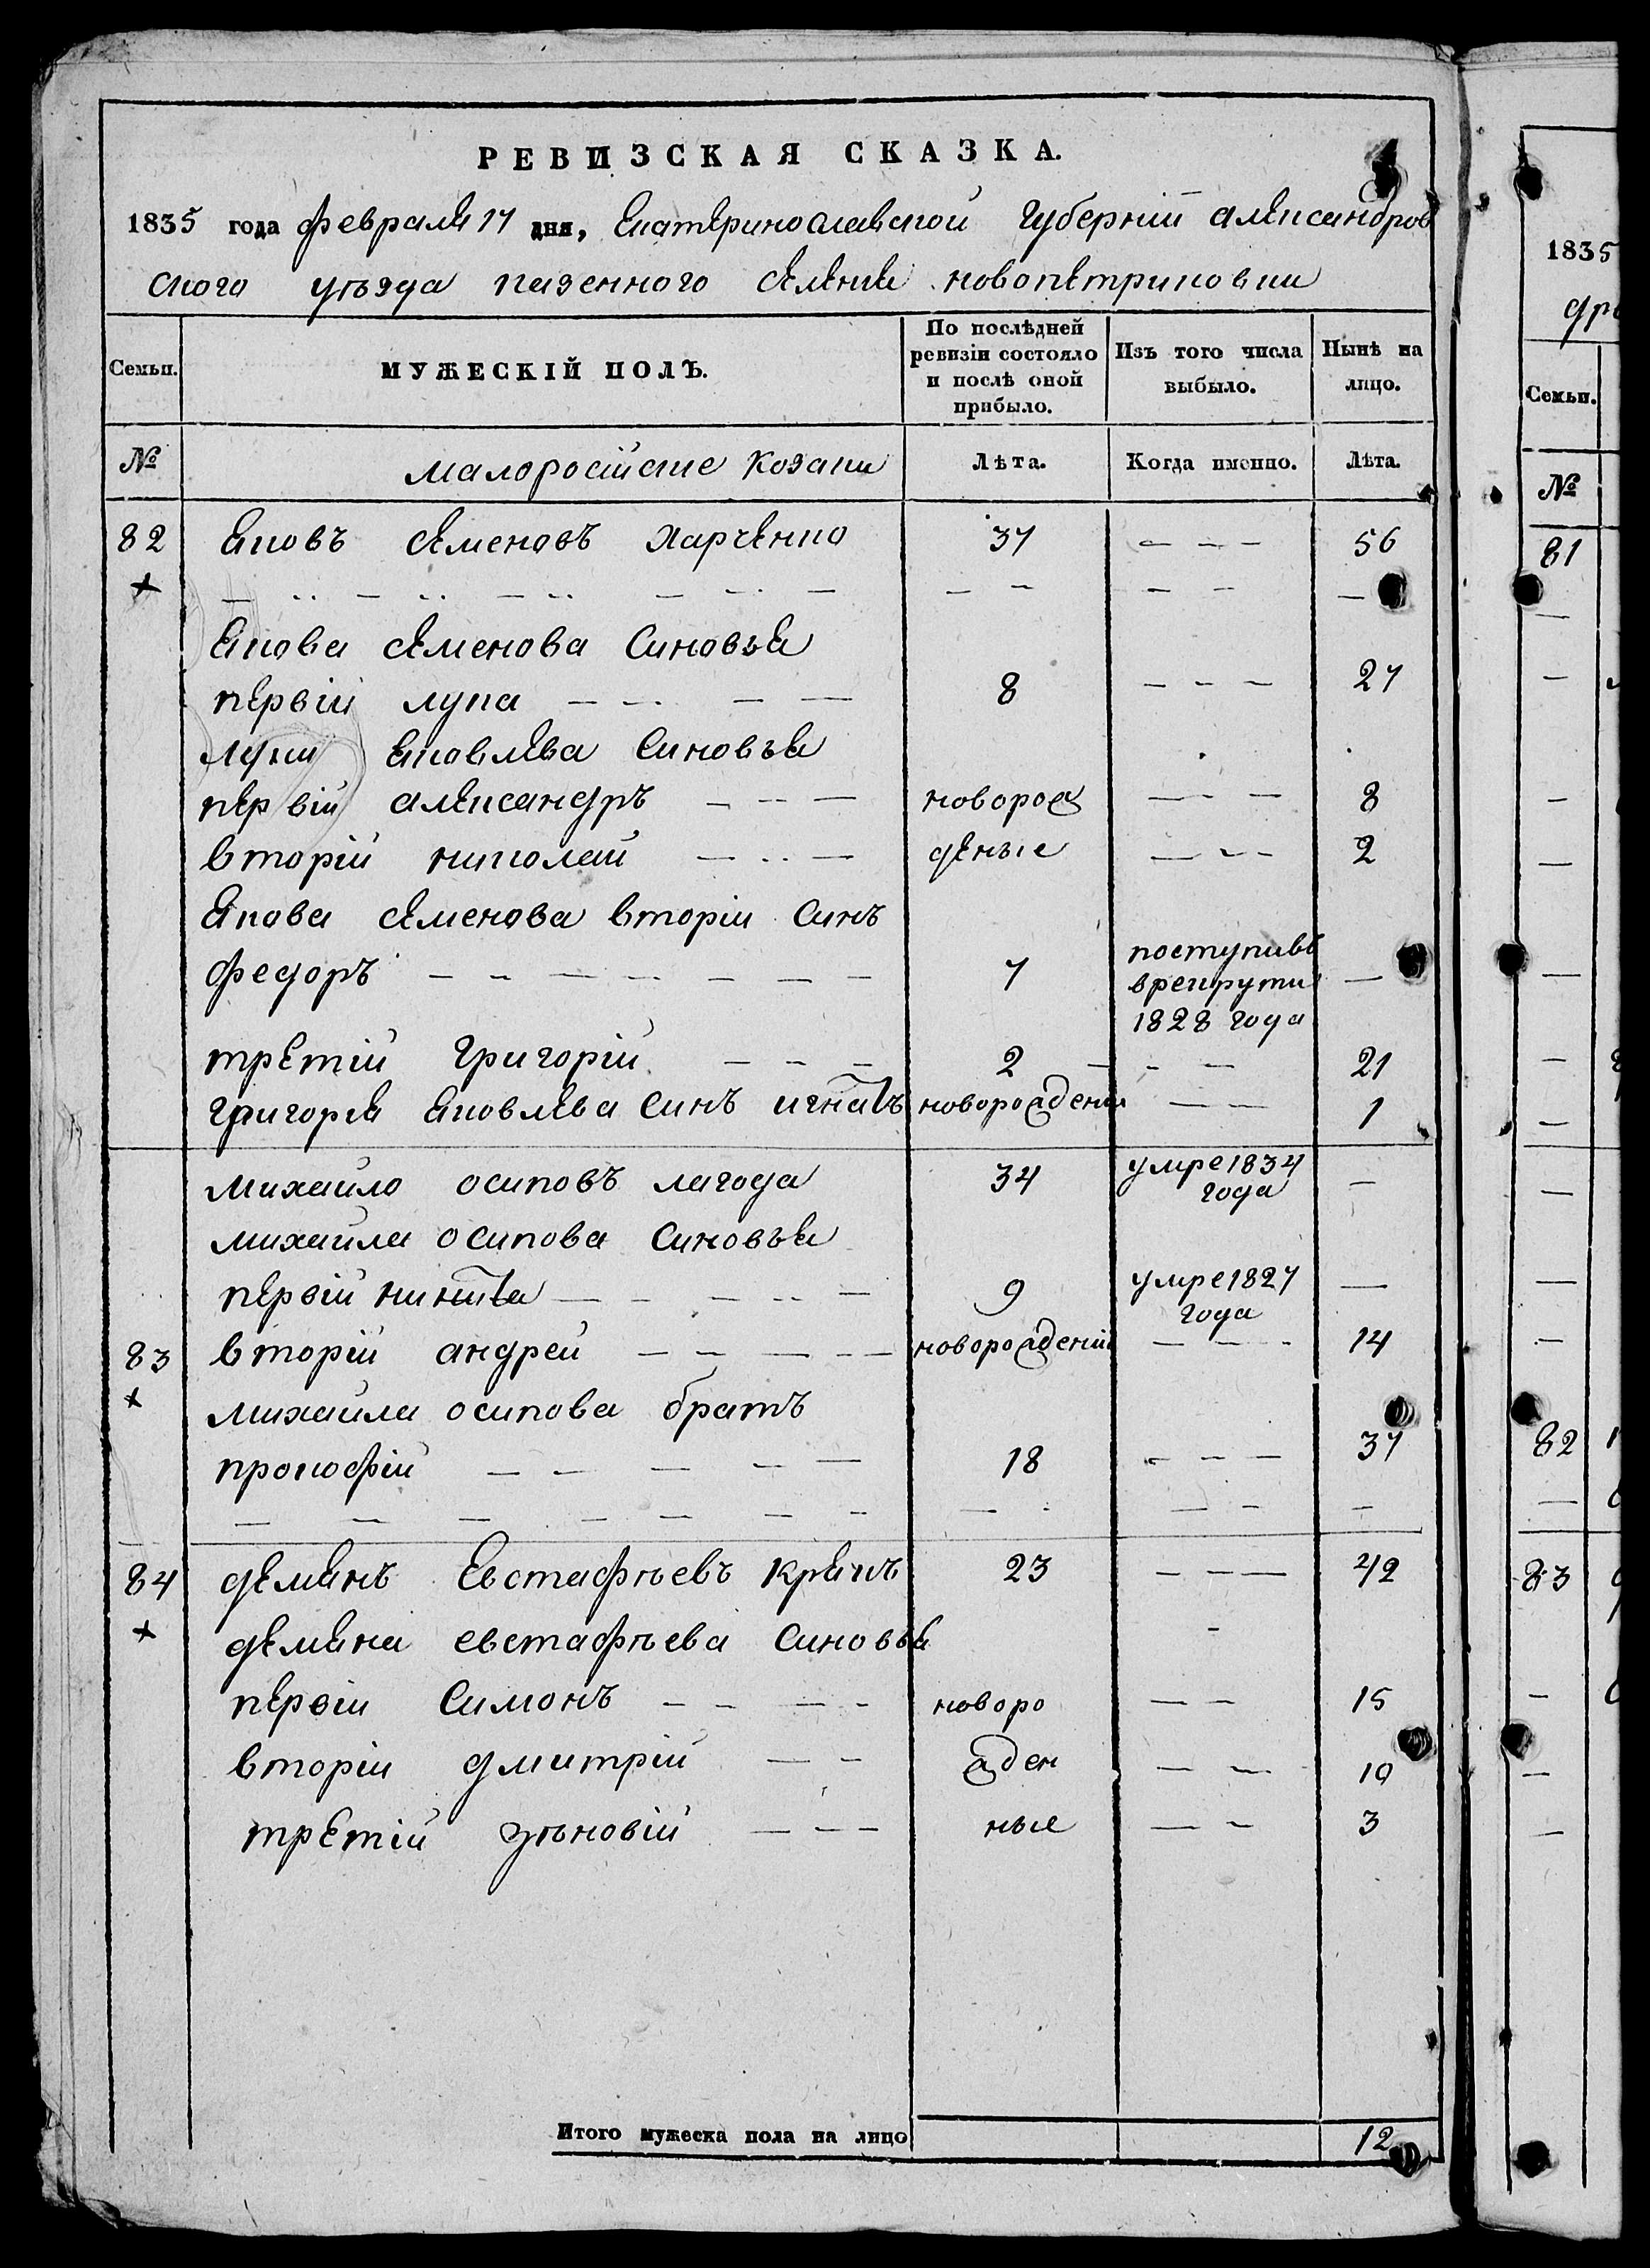 РЕВИЗСКАЯ СКАЗКА.
1835 года февраля 17 дня, Екатеринославской Губернїи александров
ского уѣзда казенного селения новопетриковки
Семьи. МУЖЕСКІЙ ПОЛЪ. По послѣдней ревизіи состояло и послѣ оной прибыло. Изъ того числа выбыло. Нынѣ на лицо.
№ малоросїйские козаки Лѣта. Когда именно. Лѣта.
82 Яковъ Семеновъ Харченко 37 56
Якова Семенова Синовья
первїй лука 8 27
луки Яковлева Синовья
первїй александръ новорож 8
вторїй николай деные 2
Якова Семенова вторїи Синъ
федоръ 7 поступивъ
в рекрути
1828 года
третїй Григорїй 2 21
Григоря Яковлева Синъ игнатъ новорожден 1
михайло осиповъ лагода 34 умре 1834
года
михайла осипова Синовья
первїй никита 9 умре 1827
года
83 вторїй андрей новорожденїй 14
михайла осипова братъ
прокофїй 18 37
84 демянъ Евстафѣевъ 23 42
демяна евстафѣева Синовья
первїи Симонъ новоро 15
вторїи дмитрїй жден 10
третїй зѣновїй ные 3
Итого мужеска пола на лицо 12
1835
Семьи.
№
81
82
83